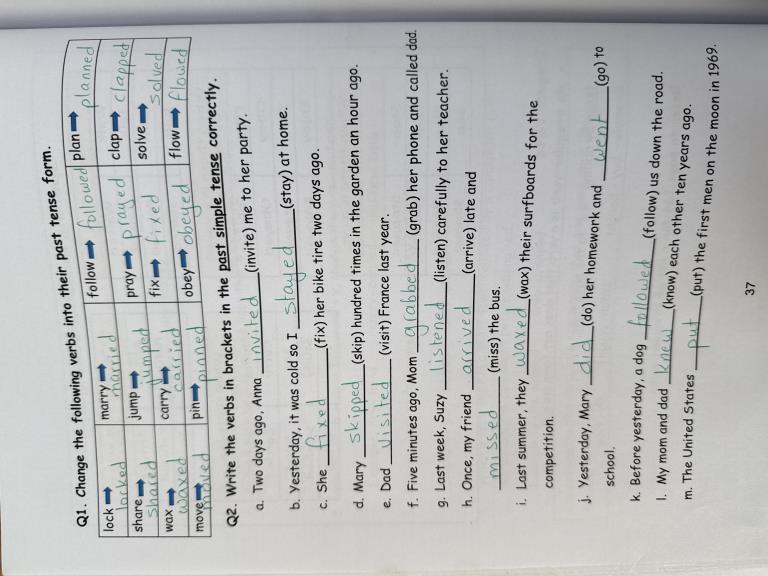 Q1. Change the following verbs into their past tense form.
lock➡ locked marry➡ married follow➡ followed plan➡ planned
share➡ shared jump➡ jumped pray➡ prayed clap➡ clapped
wax➡ waxed carry➡ carried fix➡ fixed solve➡ solved
move➡ moved pin➡ pinned obey➡ obeyed flow➡ flowed
Q2. Write the verbs in brackets in the past simple tense correctly.
a. Two days ago, Anna invited (invite) me to her party.
b. Yesterday, it was cold so I stayed (stay) at home.
c. She fixed (fix) her bike tire two days ago.
d. Mary skipped (skip) hundred times in the garden an hour ago.
e. Dad visited (visit) France last year.
f. Five minutes ago, Mom grabbed (grab) her phone and called dad.
g. Last week, Suzy listened (listen) carefully to her teacher.
h. Once, my friend arrived (arrive) late and
missed (miss) the bus.
i. Last summer, they waxed (wax) their surfboards for the
competition.
j. Yesterday, Mary did (do) her homework and went (go) to
school.
k. Before yesterday, a dog followed (follow) us down the road.
l. My mom and dad knew (know) each other ten years ago.
m. The United States put (put) the first men on the moon in 1969.
37